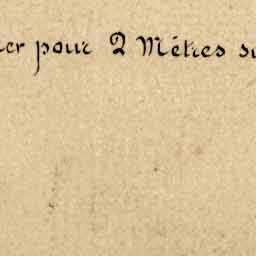 er pour 2 Mètres su